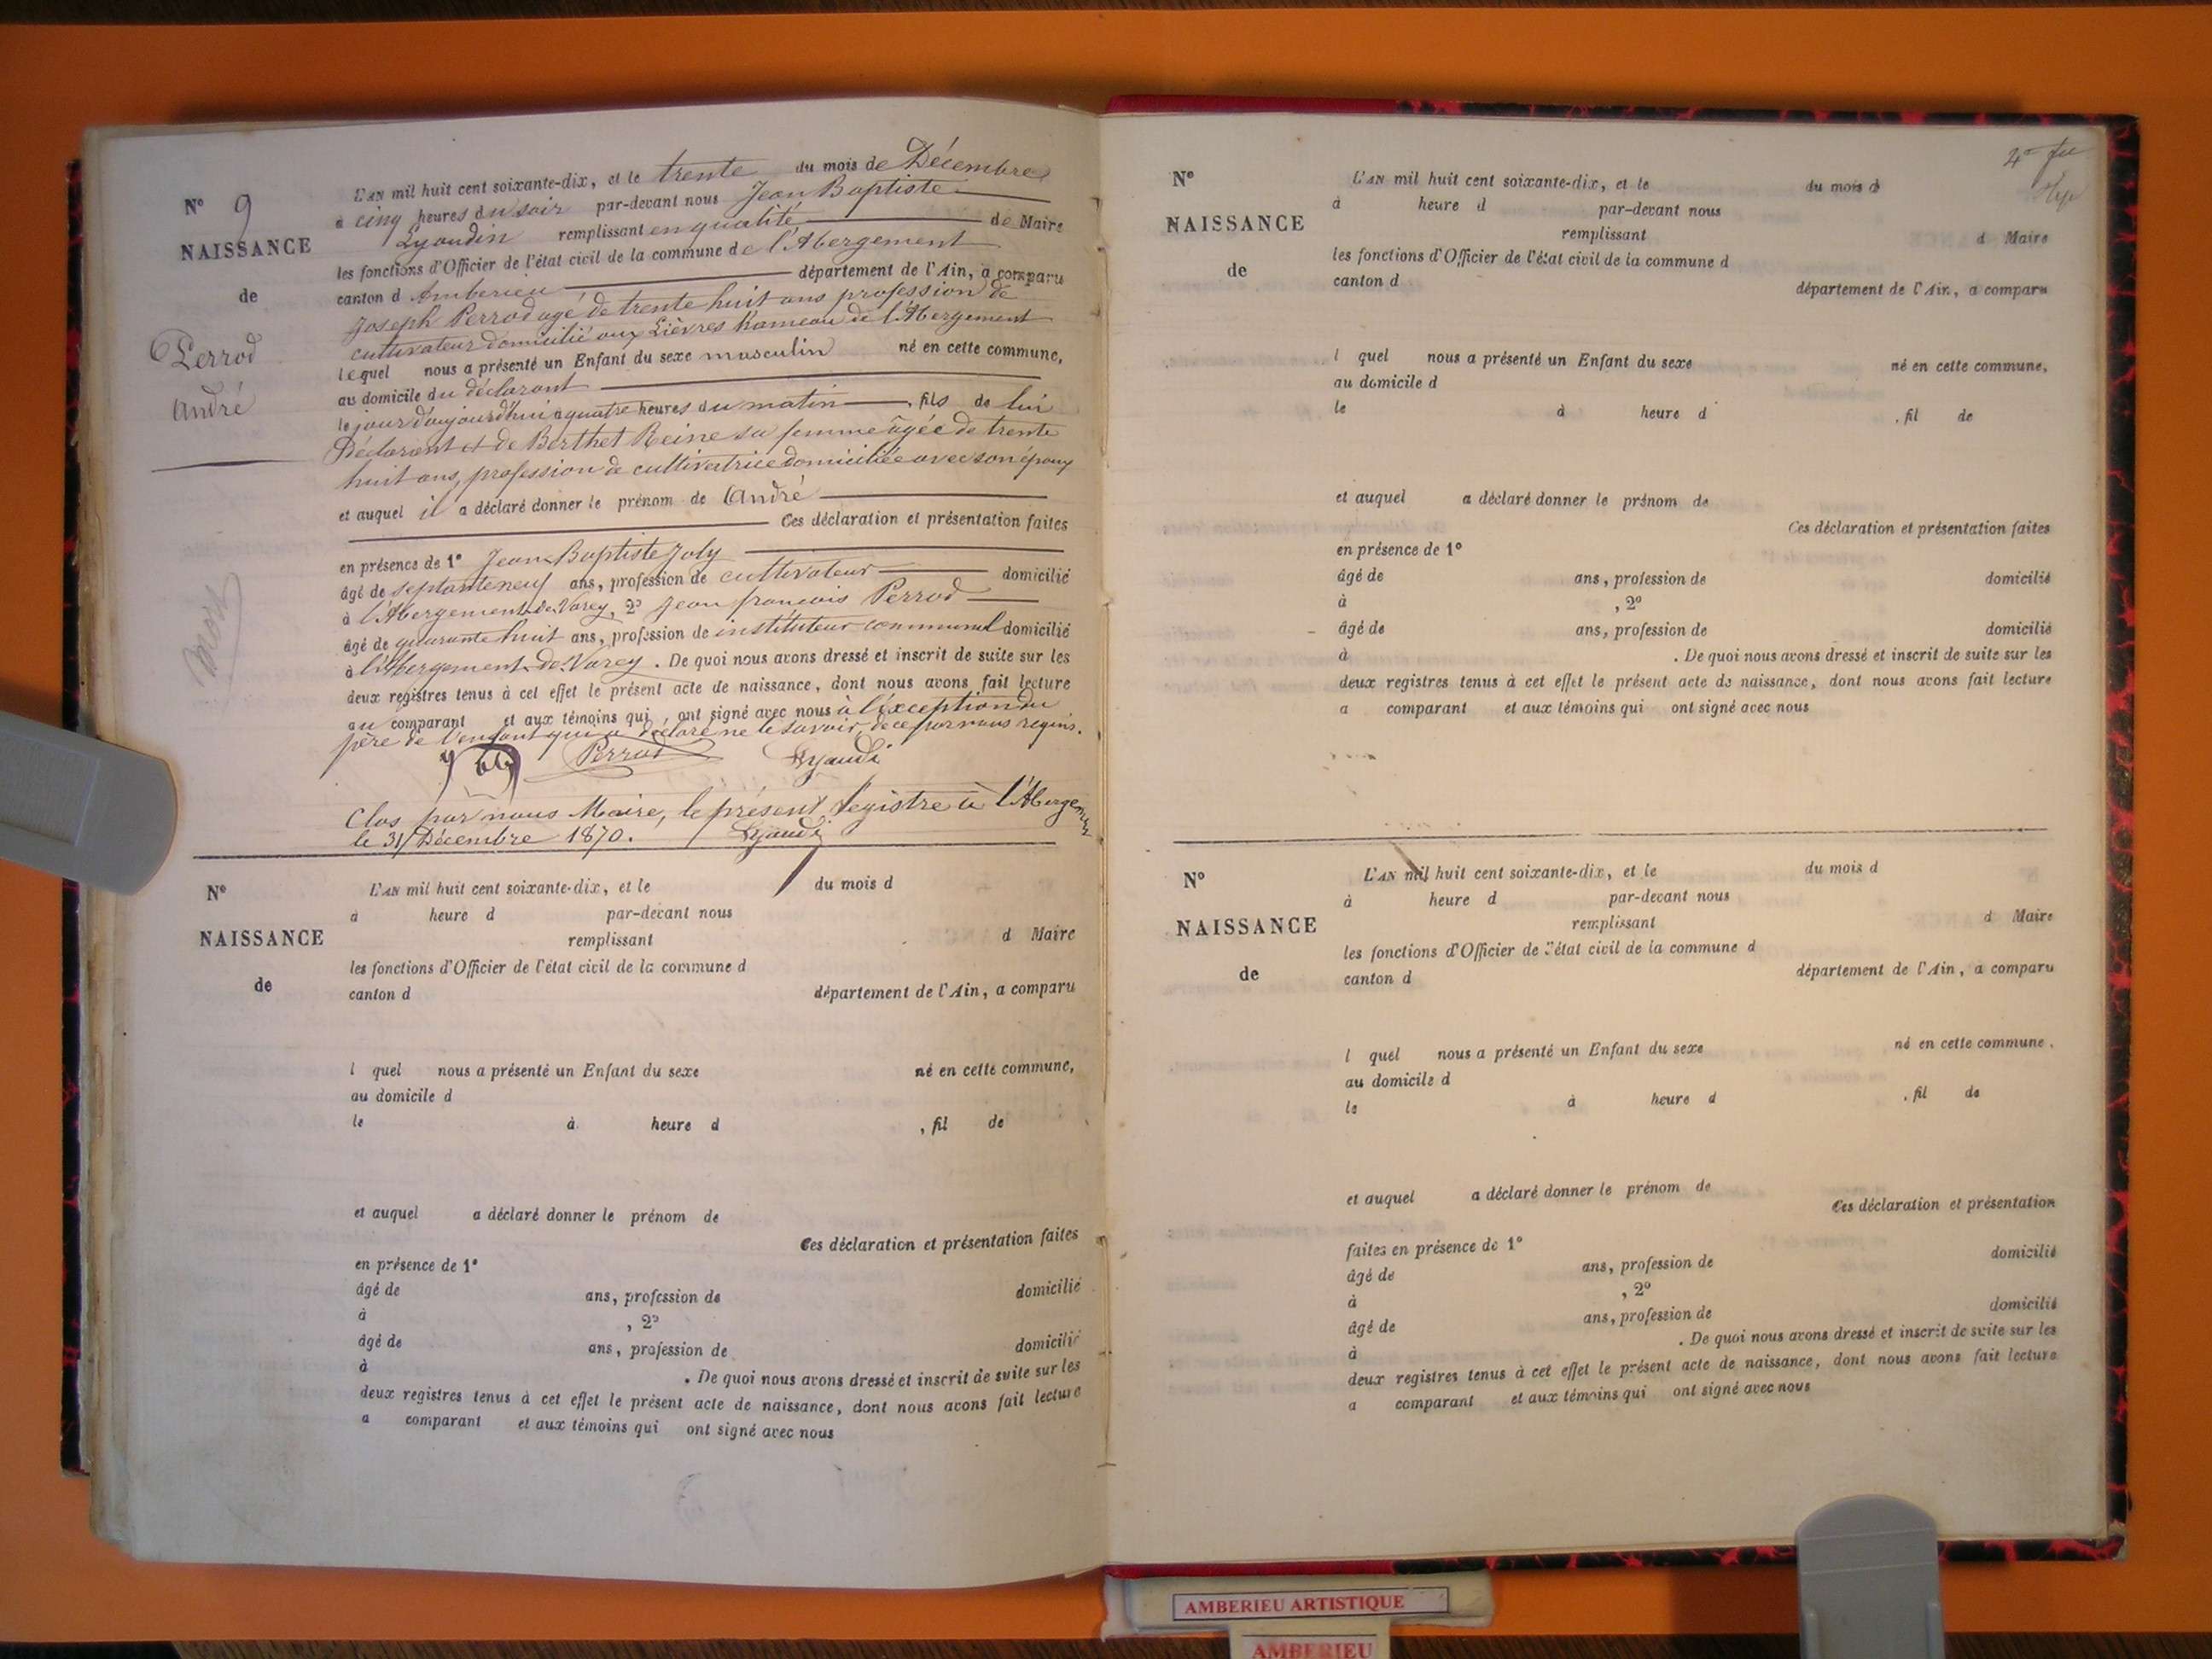 N° 9
NAISSANCE
de
Perrod
André
mort
L'AN mil huit cent soixante-dix, et le trente du mois de Décembre
à cinq heures du soir par-devant nous Jean Baptiste
Lyaudin remplissant en qualité de Maire
les fonctions d'Officier de l'état civil de la commune de l'Abergement
canton d Amberieu département de l'Ain, a comparu
Joseph Perrod agé de trente huit ans profession de
cultivateur domicilié aux Lièvres hameau de l'Abergement
lequel nous a présenté un Enfant du sexe masculin né en cette commune,
au domicile du déclarant
le jour d'aujourd'hui à quatre heures du matin , fils de lui
Déclarant et de Berthet Reine sa femme âgée de trente
huit ans, profession de cultivatrice domiciliée avec son époux
et auquel il a déclaré donner le prénom de André
Ces déclaration et présentation faites
en présence de 1° Jean Baptiste Joly
âgé de septante neuf ans, profession de cultivateur domicilié
à l'Abergement-de-Varey, 2° Jean françois Perrod
âgé de quarante huit ans, profession de instituteur communal domicilié
à l'Abergement-de-Varey . De quoi nous avons dressé et inscrit de suite sur les
deux registres tenus à cet effet le présent acte de naissance, dont nous avons fait lecture
au comparant et aux témoins qui, ont signé avec nous à l'exception du
père de l'enfant qui a déclaré ne le savoir, de ce par nous requis.
Perrod Lyaudi
Clos par nous Maire, le présent Registre à l'Abergement
le 31 Décembre 1870. Lyaudi
N°
NAISSANCE
de
L'AN mil huit cent soixante-dix, et le du mois d
à heure d par-devant nous
remplissant d Maire
les fonctions d'Officier de l'état civil de la commune d
canton d département de l'Ain, a comparu
l quel nous a présenté un Enfant du sexe né en cette commune,
au domicile d
le à heure d , fil de
et auquel a déclaré donner le prénom de
Ces déclaration et présentation faites
en présence de 1°
âgé de ans, profession de domicilié
à , 2°
âgé de ans, profession de domicilié
à . De quoi nous avons dressé et inscrit de suite sur les
deux registres tenus à cet effet le présent acte de naissance, dont nous avons fait lecture
a comparant et aux témoins qui ont signé avec nous
N°
NAISSANCE
de
L'AN mil huit cent soixante-dix, et le du mois d
à heure d par-devant nous
remplissant d Maire
les fonctions d'Officier de l'état civil de la commune d
canton d département de l'Ain, a comparu
l quel nous a présenté un Enfant du sexe né en cette commune,
au domicile d
le à heure d , fil de
et auquel a déclaré donner le prénom de
Ces déclaration et présentation faites
en présence de 1°
âgé de ans, profession de domicilié
à , 2°
âgé de ans, profession de domicilié
à . De quoi nous avons dressé et inscrit de suite sur les
deux registres tenus à cet effet le présent acte de naissance, dont nous avons fait lecture
a comparant et aux témoins qui ont signé avec nous
N°
NAISSANCE
de
L'AN mil huit cent soixante-dix, et le du mois d
à heure d par-devant nous
remplissant d Maire
les fonctions d'Officier de l'état civil de la commune d
canton d département de l'Ain, a comparu
l quel nous a présenté un Enfant du sexe né en cette commune,
au domicile d
le à heure d , fil de
et auquel a déclaré donner le prénom de
Ces déclaration et présentation
faites en présence de 1°
âgé de ans, profession de domicilié
à , 2°
âgé de ans, profession de domicilié
à . De quoi nous avons dressé et inscrit de suite sur les
deux registres tenus à cet effet le présent acte de naissance, dont nous avons fait lecture
a comparant et aux témoins qui ont signé avec nous
AMBERIEU ARTISTIQUE
AMBERIEU